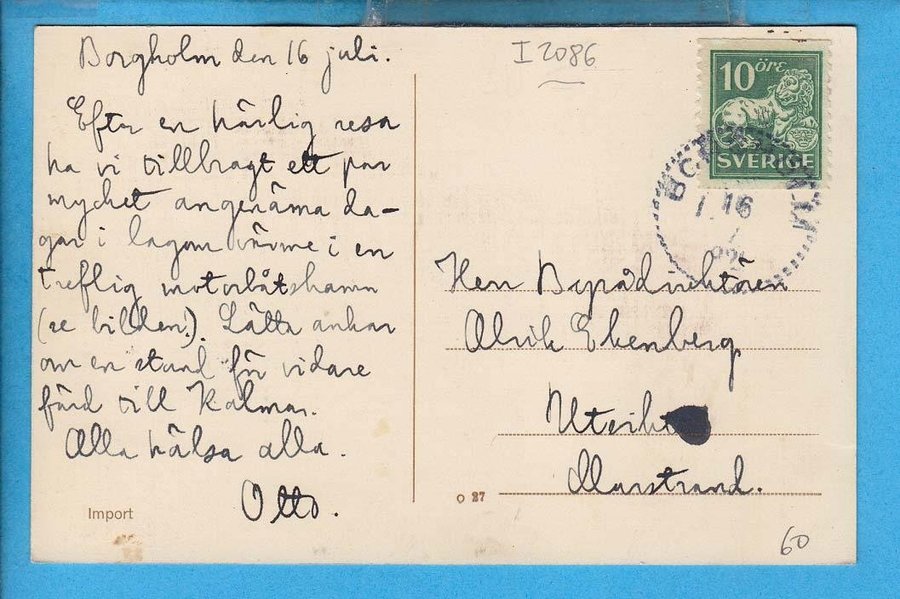 Borgholm den 16 juli.
Efter en härlig resa
ha vi tillbragt ett par
mycket angenäma da-
gar i lagom värme i en
treflig motorbåtshamn
(se bilden!). Lätta ankar
om en stund för vidare
färd till Kalmar.
Alla hälsa alla.
Otto.
Import
I 2086
10 öre
SVERIGE
16
Herr Byrådirektören
Alrik Ekenberg
Marstrand.
O 27
60